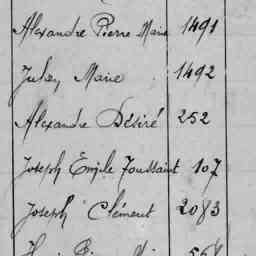 Alexandre Pierre Marie 1491
Jules Marie 1492
Alexandre Désiré 252
Joseph Emile Toussaint 107
Joseph Clément 2083